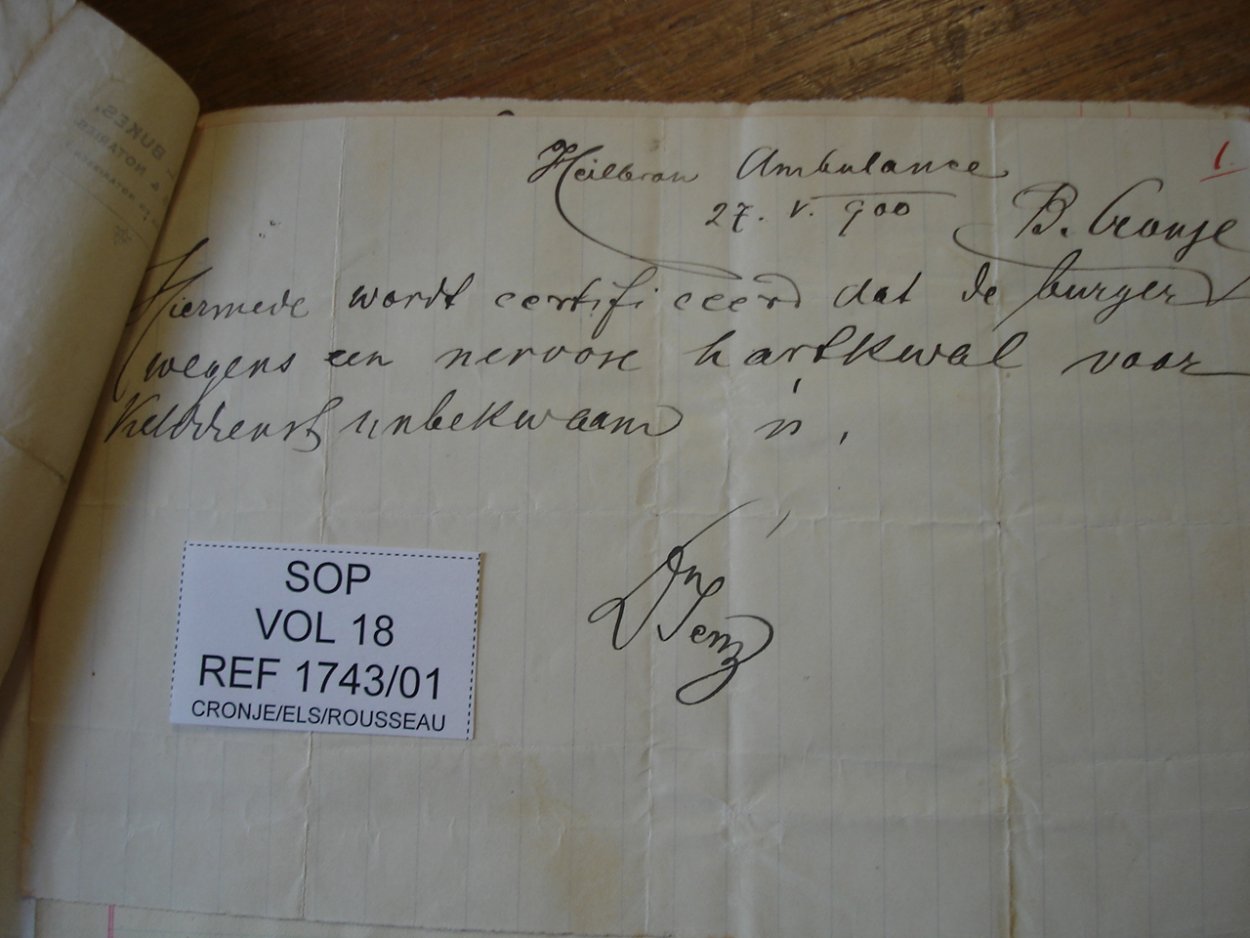 BUKES,
& NOTARIES
1.
Heilbron Ambulance
27. V. 900
B. Cronje
Hiermede wordt certificeerd dat de burger
wegens een nervose hartkwal voor
Velddienst unbekwaam is,
SOP
VOL 18
REF 1743/01
CRONJE/ELS/ROUSSEAU